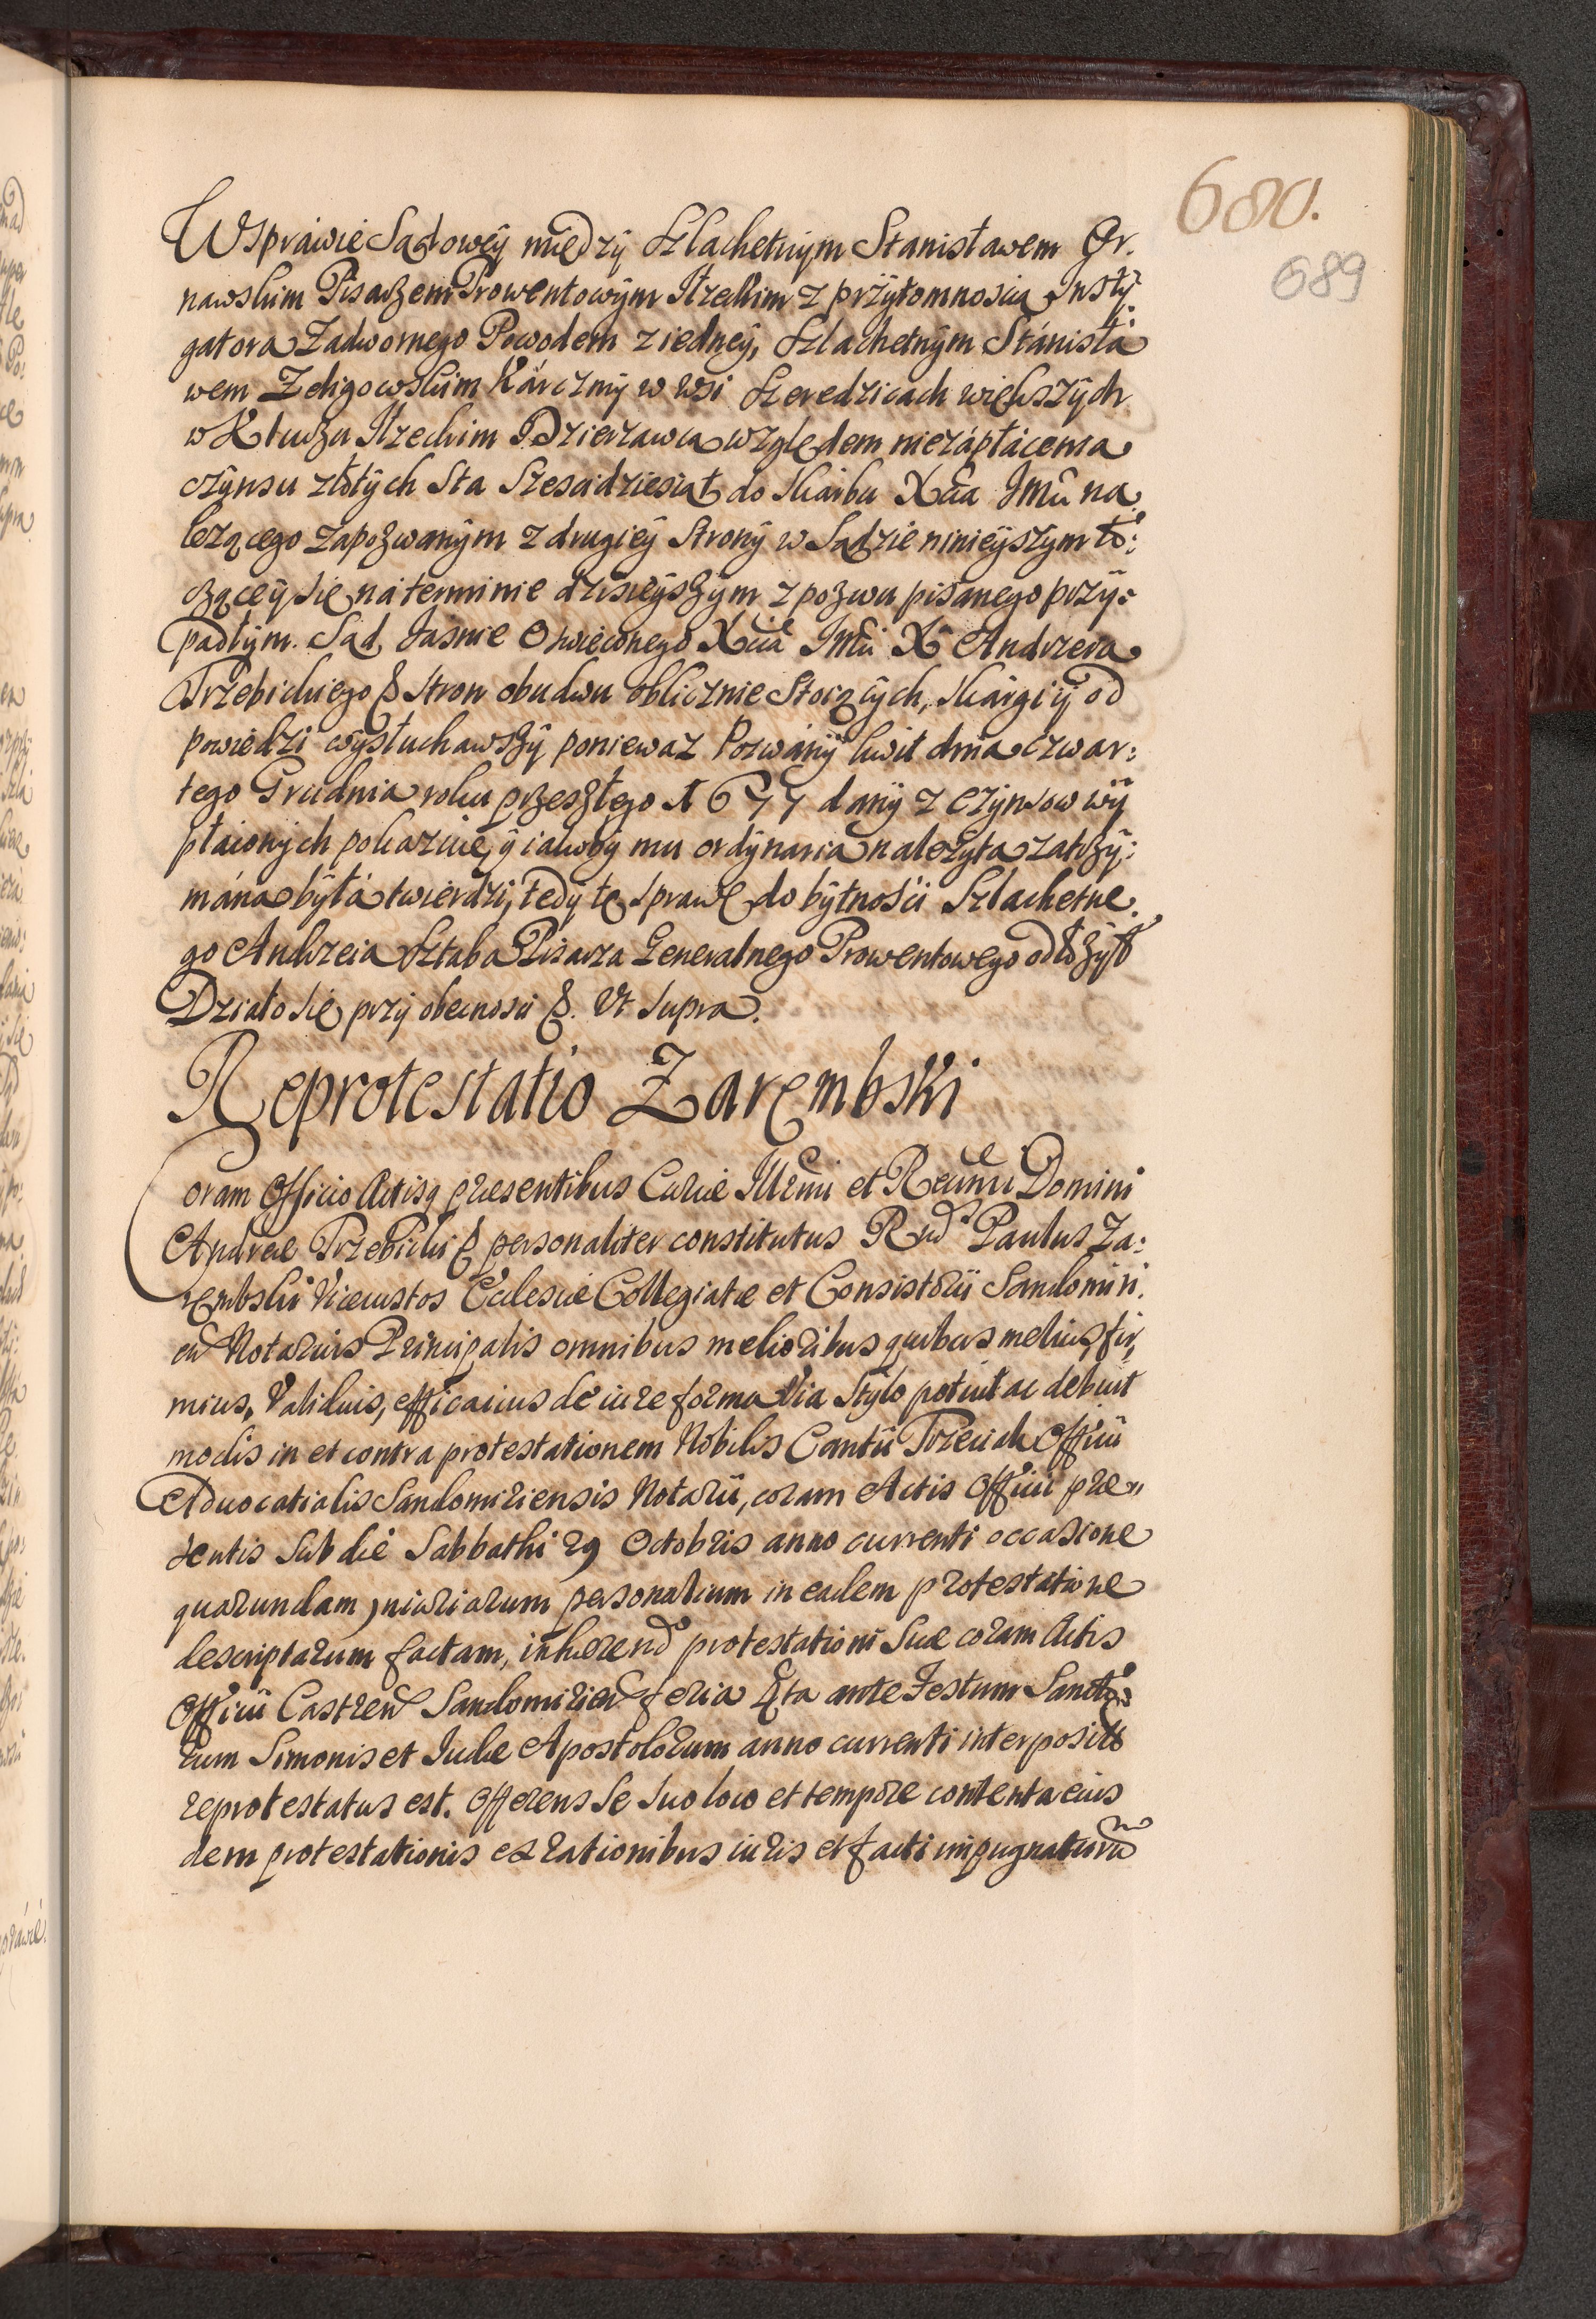 680.
689
W Spráwie Sądowey między Szlachetnym Stanisławem Gr:
nawskim Pisarzem Prowentowym Iłzeckim z przytomnoscią Insty:
gatora Zadwornego Powodem z iedney, Szlachetnym Stánisłá
wem Zeligowskim Kárczmy w wsi Szeredzicach większych
w Kluczu Iłzeckim Dzierzawcą względem niezápłácenia
czynsu złotych Sta Szescidziesiąt do Skárbu Xcia Jmci na
lezącego zapozwanym z drugiey Strony w Sądzie ninieyszym to:
czącey się na terminie dzisieyszym z pozwu pisanego przy:
padłym. Sąd Jasnie Oswieconego Xcia Jmci X Andrzeia
Trzebickiego & stron obudwu oblicznie Stoiących, Skárgi y od
powiedzi wysłuchawszy poniewaz Pozwány kwit dnia czwar:
tego Grudnia roku przeszłego 1677 dány z czynsow wy
płaconych pokazuie, y iakoby mu ordynaria należyta zatrzy:
mána byłá twierdzi, tedy tę Sprawę do bytnosci Szlachetne
go Andrzeia Sztaba Pisarza Generalnego Prowentowego odłożył
Działo się przy obecnosci &. Vt supra.
Reprotestatio Zarembski
Coram Officio Actisq presentibus Curiæ Illrmi et Rcmmi Domini
Andreæ Trzebicki & personaliter constitutus Rnd Paulus Za:
rembski Vicecustos Ecclesiæ Collegiatæ et Consistorii Sandomiri
en Notarius Principalis omnibus melioribus quibus melius, fir,
mius, Validius, efficacius de iure forma Via Stylo potuit ac debuit
modis in et contra protestationem Nobilis Cantii Trzeciak Officii
Advocatialis Sandomiriensis Notarii, coram Actis Officii præ
sentis Sub die Sabbathi 29 Octobris anno currenti occasione
quarundam iniuriarum personalium in eadem protestatione
descriptarum factam, inhærend protestationi Suæ coram Actis
Officii Castren Sandomirien feria 4ta ante Festum Sancto:
rum Simonis et Iudæ Apostolorum anno currenti interpositæ
reprotestatus est. Offerens Se Suo loco et tempore contenta eius
dem protestationis ex rationibus iuris et facti impugnaturum